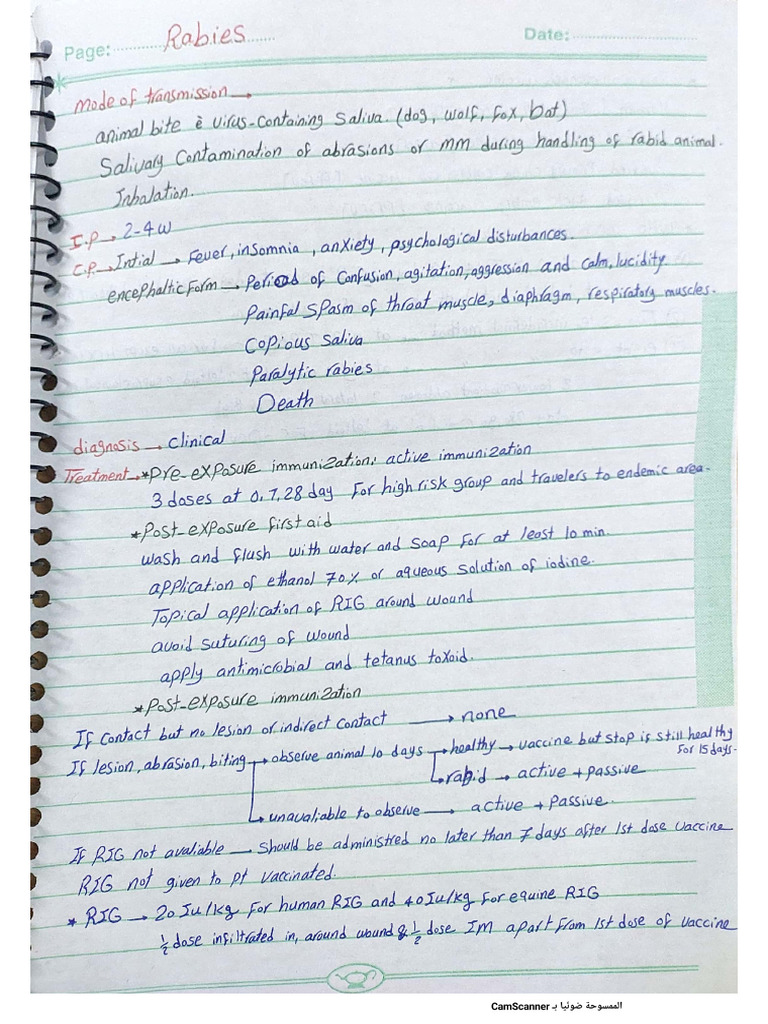 Page: Rabies Date:
mode of transmission →
animal bite è virus-containing saliva. (dog, wolf, fox, bat)
Salivary Contamination of abrasions or mm during handling of rabid animal.
Inhalation.
I.P → 2-4w
C.P → Intial → Fever, insomnia, anxiety, psychological disturbances.
encephaltic form → Period of Confusion, agitation, aggression and calm, lucidity
Painful spasm of throat muscle, diaphragm, respiratory muscles.
Copious Saliva
Paralytic rabies
Death
diagnosis → clinical
Treatment → *Pre-exposure immunization: active immunization
3 doses at 0,7,28 day For high risk group and travelers to endemic area.
*Post-exposure first aid
wash and flush with water and soap for at least 10 min.
application of ethanol 70% or aqueous solution of iodine.
Topical application of RIG around wound
avoid suturing of wound
apply antimicrobial and tetanus toxoid.
*Post-exposure immunization
If contact but no lesion or indirect contact → none
If lesion, abrasion, biting → observe animal 10 days → healthy → vaccine but stop is still healthy
for 15 days.
→ rabid → active + passive
→ unavaliable to observe → active + Passive.
If RIG not avaliable → Should be administred no later than 7 days after 1st dose vaccine
RIG not given to pt vaccinated.
* RIG → 20 Iu/kg for human RIG and 40 Iu/kg for equine RIG
½ dose infiltrated in, around wound & ½ dose IM apart from 1st dose of vaccine
الممسوحة ضوئيا بـ CamScanner